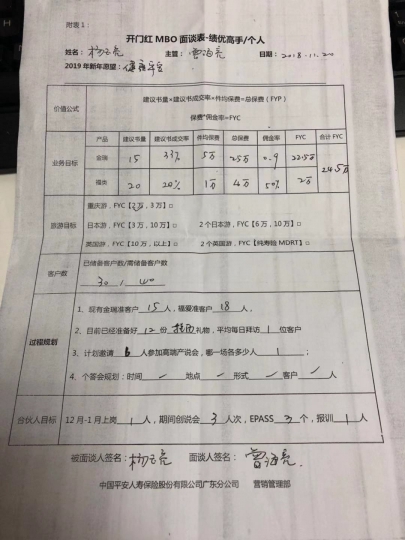 附表 1
开门红 MBO 面谈表-绩优高手/个人
姓名： 主管： 日期：2018.11.20
2019 年新年愿望：健康平安
价值公式
建议书量×建议书成交率×件均保费=总保费（FYP）
保费*佣金率=FYC
业务目标
产品 建议书量 建议书成交率 件均保费 总保费 佣金率 FYC 合计 FYC
金瑞 15 33% 5万 25万 0.9 22.5万 24.5万
福 20 20% 1万 4万 50% 2万
旅游目标
重庆游，FYC【2万，3 万】□
日本游，FYC【3 万，10 万】□ 2 个日本游，FYC【6 万，10 万】□
英国游，FYC【10 万，以上】□ 2 个英国游，FYC【纯寿险 MDRT】□
客户数
已储备客户数/需储备客户数
30 / 40
过程规划
1、现有金瑞准客户 15 人，福爱准客户 18 人，
2、目前已经准备好 12 份 礼物，平均每日拜访 1 位客户
3、计划邀请 6 人参加高端产说会，哪一场各多少人 1 ；
4、个答会规划：时间 地点 形式 客户 人
合伙人目标
12 月-1 月上岗 1 人，期间创说会 3 人次，EPASS 3 个，报训 1 人
被面谈人签名： 面谈人签名：
中国平安人寿保险股份有限公司广东分公司 营销管理部